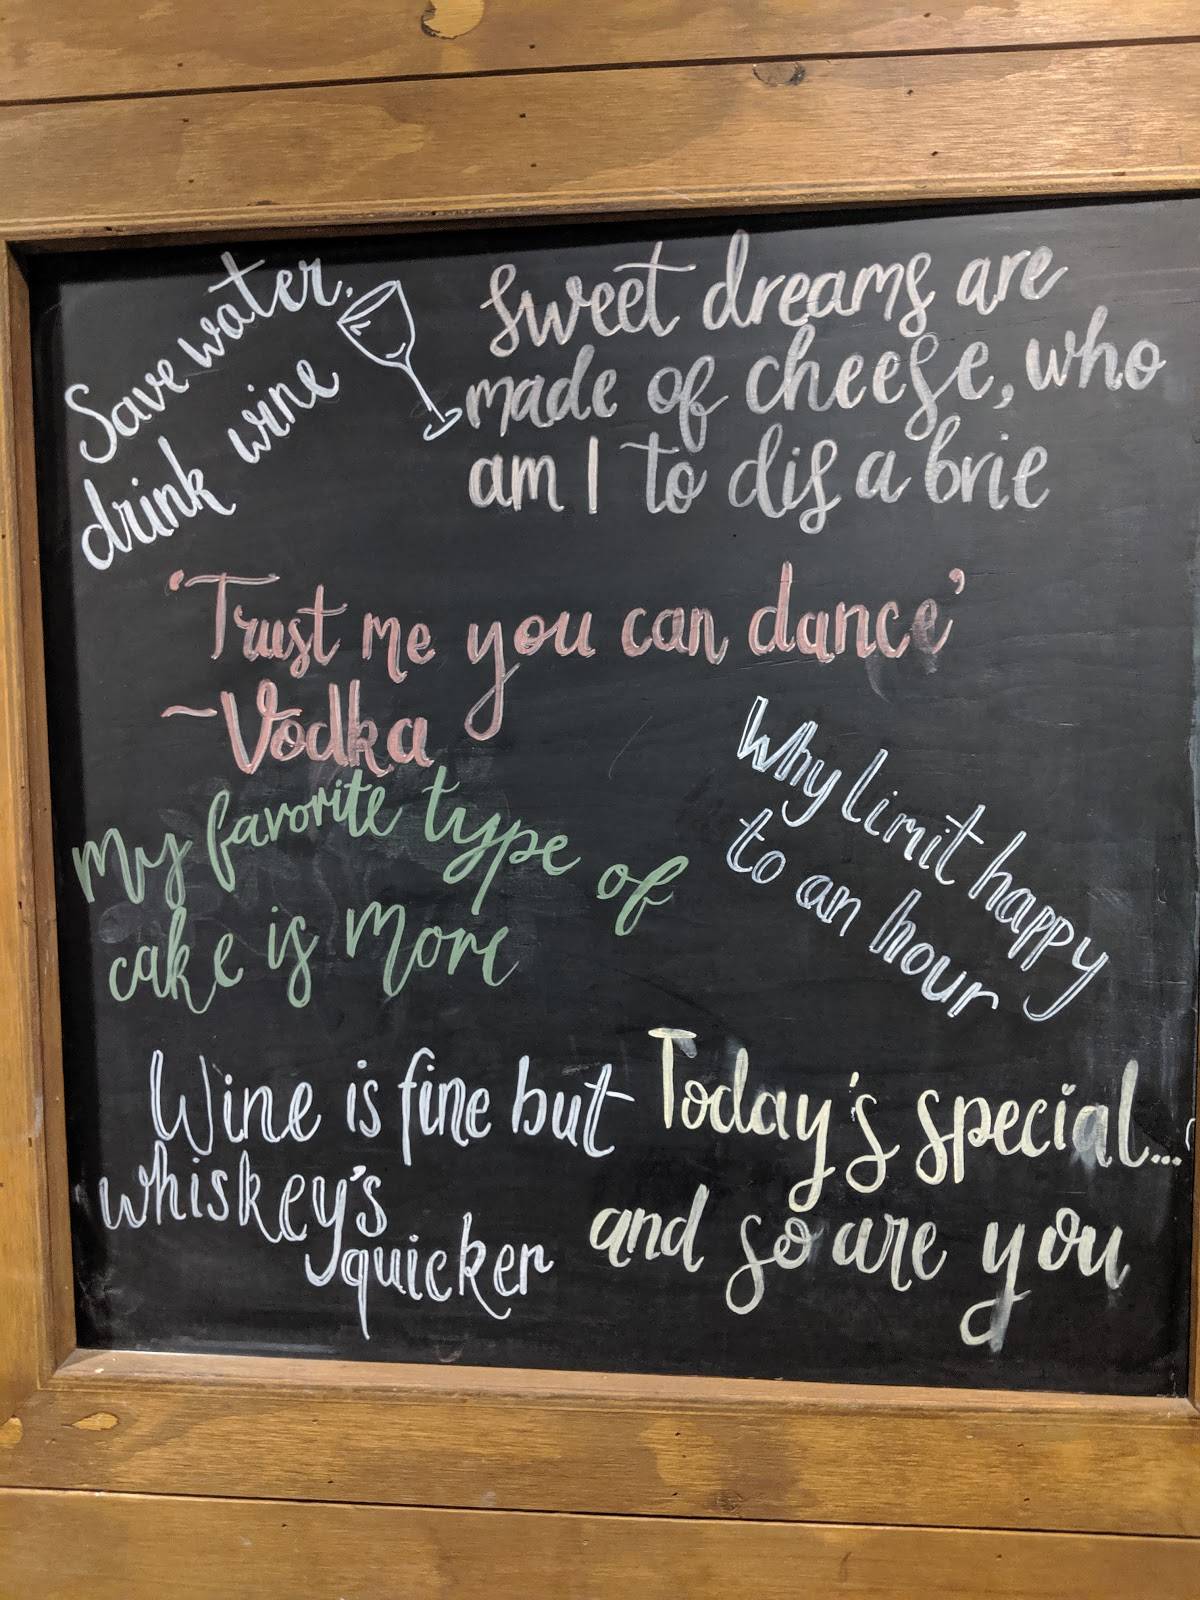 Save water,
drink wine
Sweet dreams are
made of cheese, who
am I to dis a brie
'Trust me you can dance'
~Vodka
My favorite type of
cake is more
Why limit happy
to an hour
Wine is fine but
whiskey's
quicker
Today's special...
and so are you